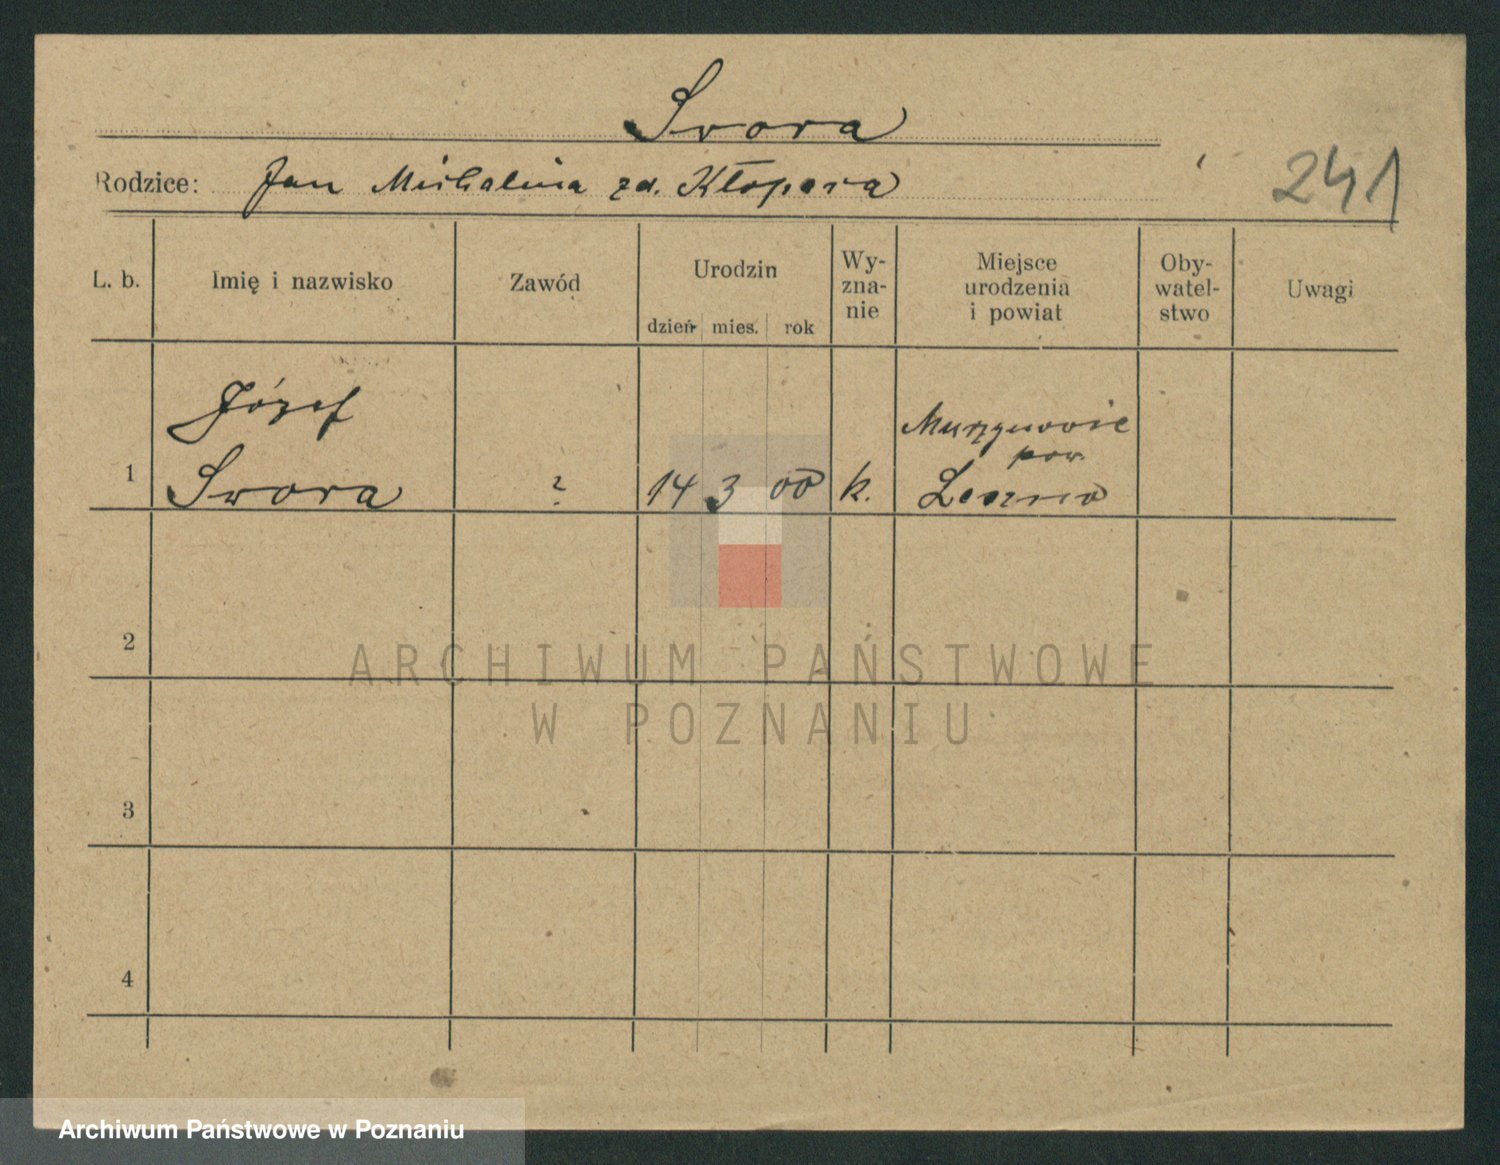 Swora
Rodzice: Jan Michalina zd. Kłopora
241
L. b.
Imię i nazwisko
Zawód
Urodzin
dzień mies. rok
Wy-
zna-
nie
Miejsce
urodzenia
i powiat
Oby-
watel-
stwo
Uwagi
1
Józef
Swora
?
14 3 00
k.
pow.
Leszno
2
3
4
ARCHIWUM PAŃSTWOWE
W POZNANIU
Archiwum Państwowe w Poznaniu